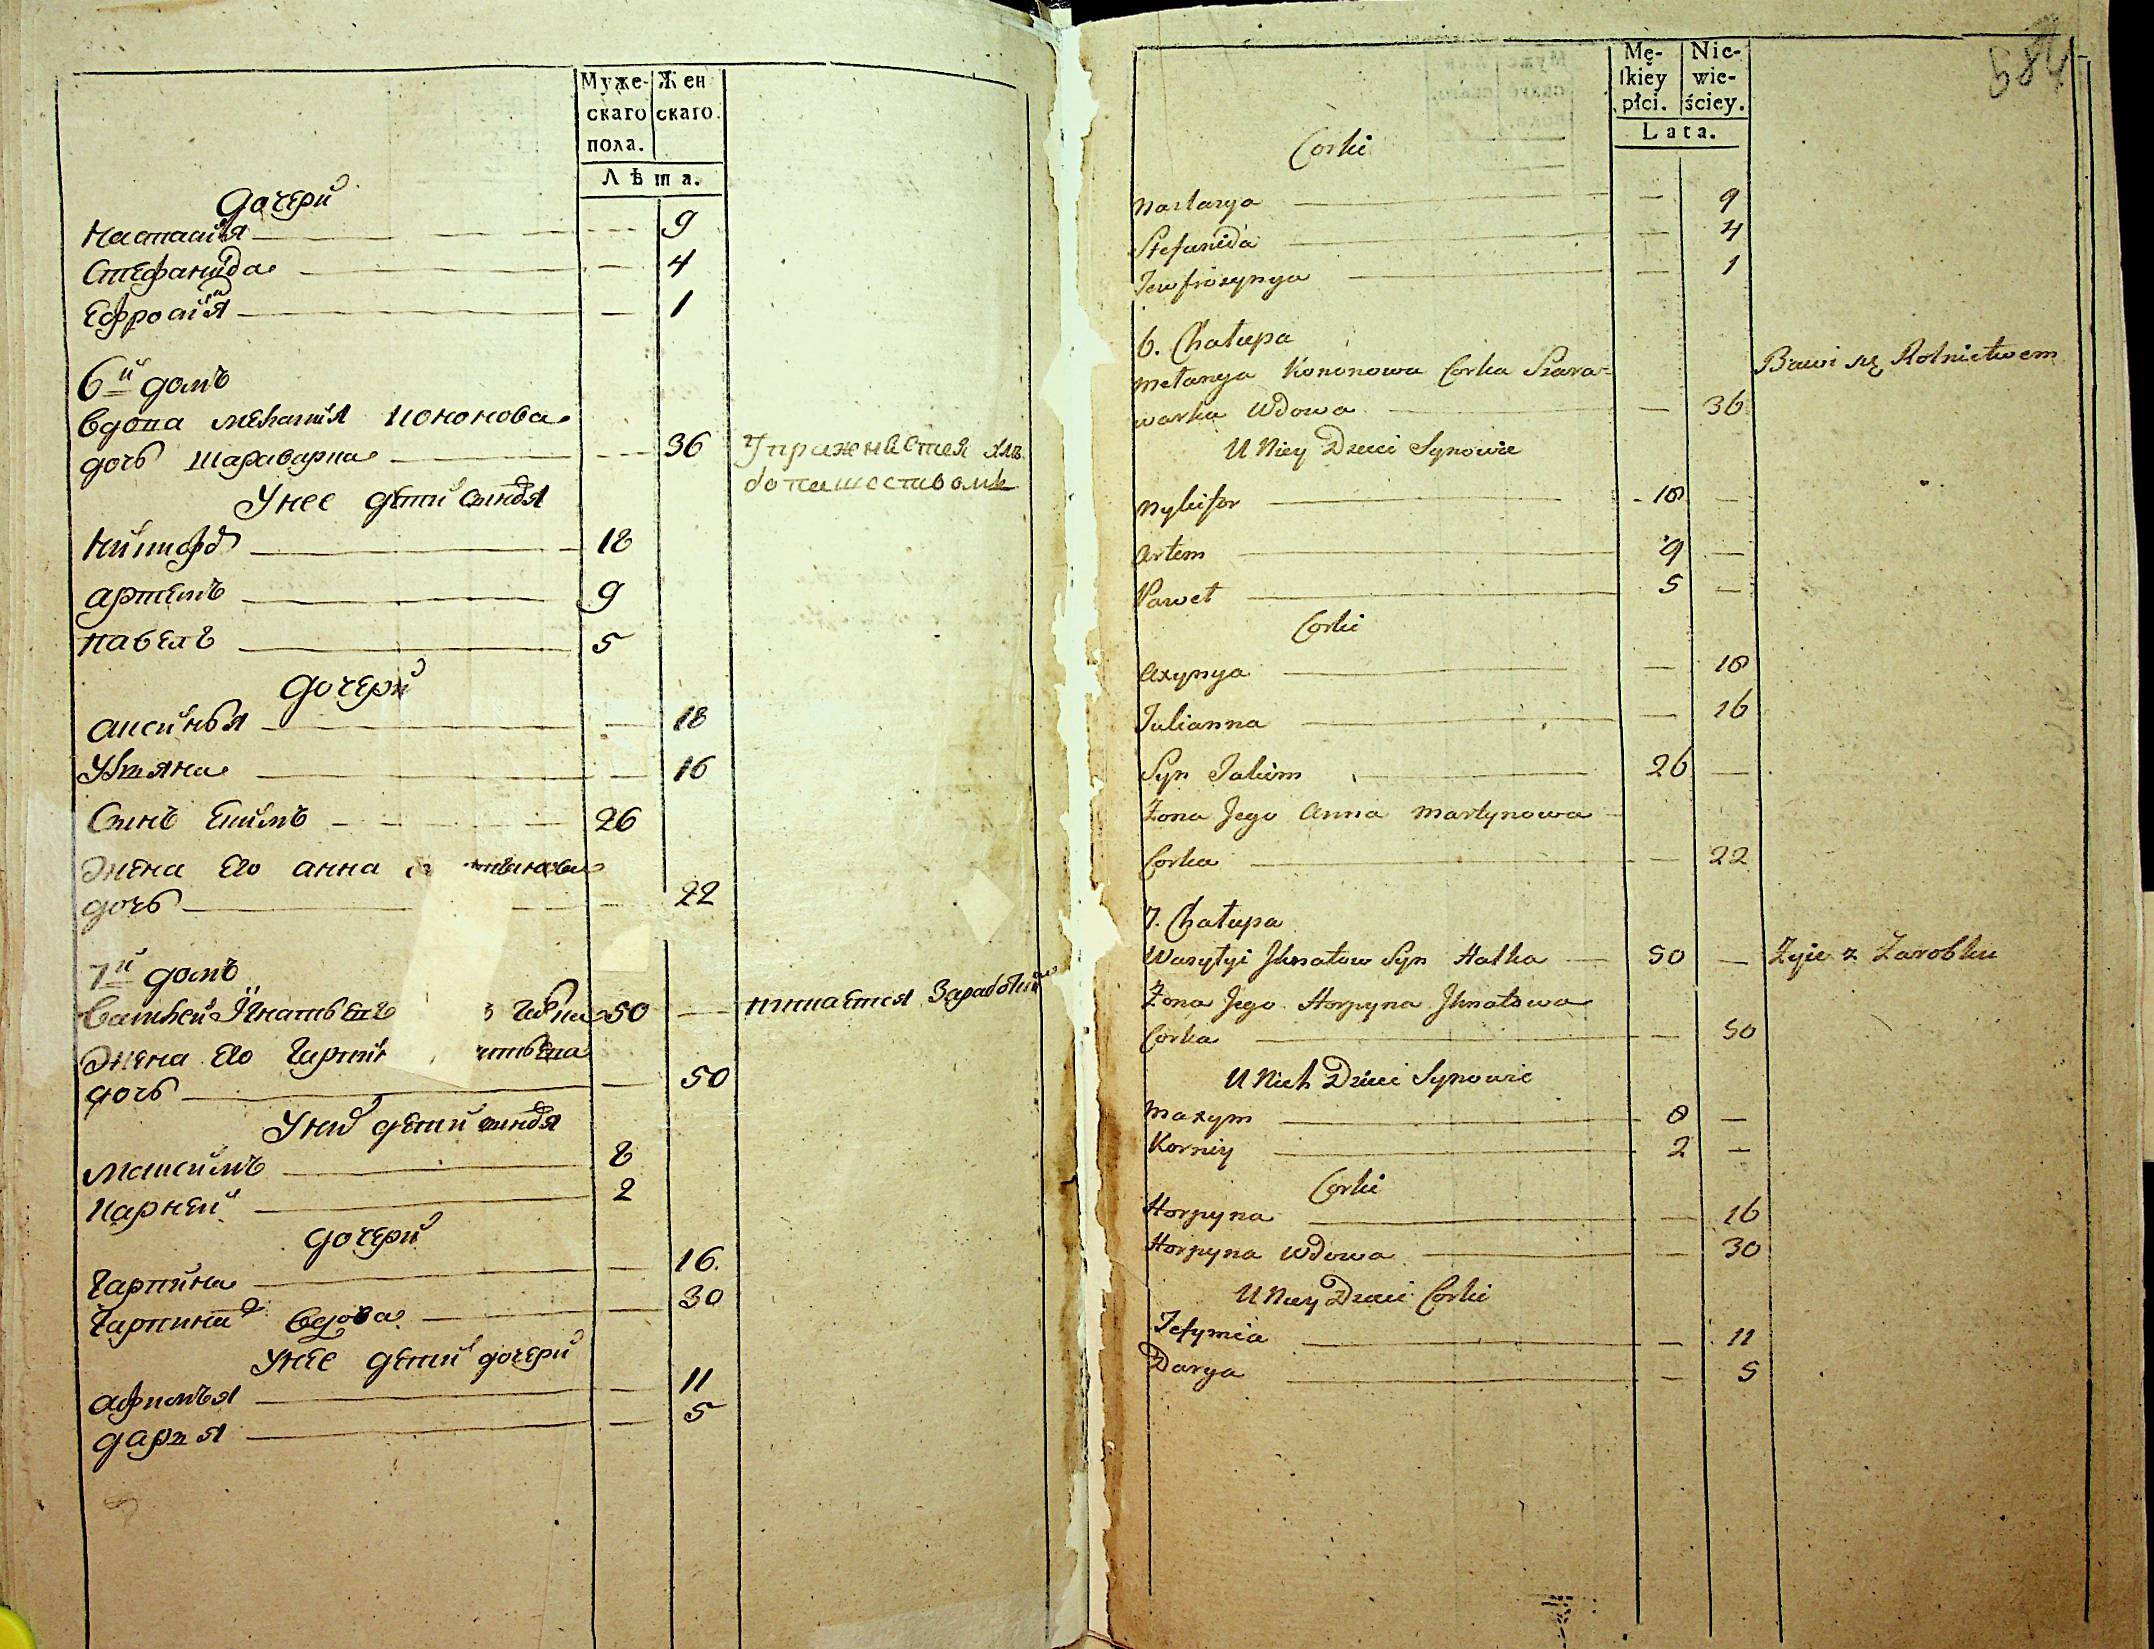 Муже-
скаго
пола.
Жен
скаго.
Лѣта.
дочери
Настасия 9
Стефанида 4
Ефросия 1
6й домъ
вдова Мелания Кононова
дочь Шараварка 36 Упражняется хлѣ
бопашеством
У нее дети синовя
Никифор 18
артемъ 9
павелъ 5
дочери
аксинья 18
Ульяна 16
Синъ Екимъ 26
Жена Его анна
дочь 22
7й домъ
Василей Игнатьевъ 50 питается Заработки
Жена Его
дочь 50
У них дети синовя
Максимъ 8
Карней 2
дочери
Гарпина 16.
Гарпина вдова 30
У нее дети дочери
афимья 11
дарья 5
584
Mę-
skiey
płci.
Nie-
wie-
ściey.
Lata.
Corki
Nastasya 9
Stefanida 4
Jewfrozynya 1
6. Chałupa
Mełanya Kononowa Corka Szara-
warka Wdowa 36 Bawi się Rolnictwem
U Niey Dzieci Synowie
Nykifor 18
Artem 9
Paweł 5
Corki
Axynya 18
Julianna 16
Syn Jakim 26
Żona Jego Anna Martynowa
Corka 22
7. Chałupa
Wasylyi Jhnatow Syn Hałka 50 Żyie z Zarobku
Żona Jego Horpyna Jhnatowa
Corka 50
U Nich Dzieci Synowie
Maxym 8
Korniy 2
Corki
Horpyna 16
Horpyna Wdowa 30
U Niey Dzieci Corki
Jefymia 11
Darya 5